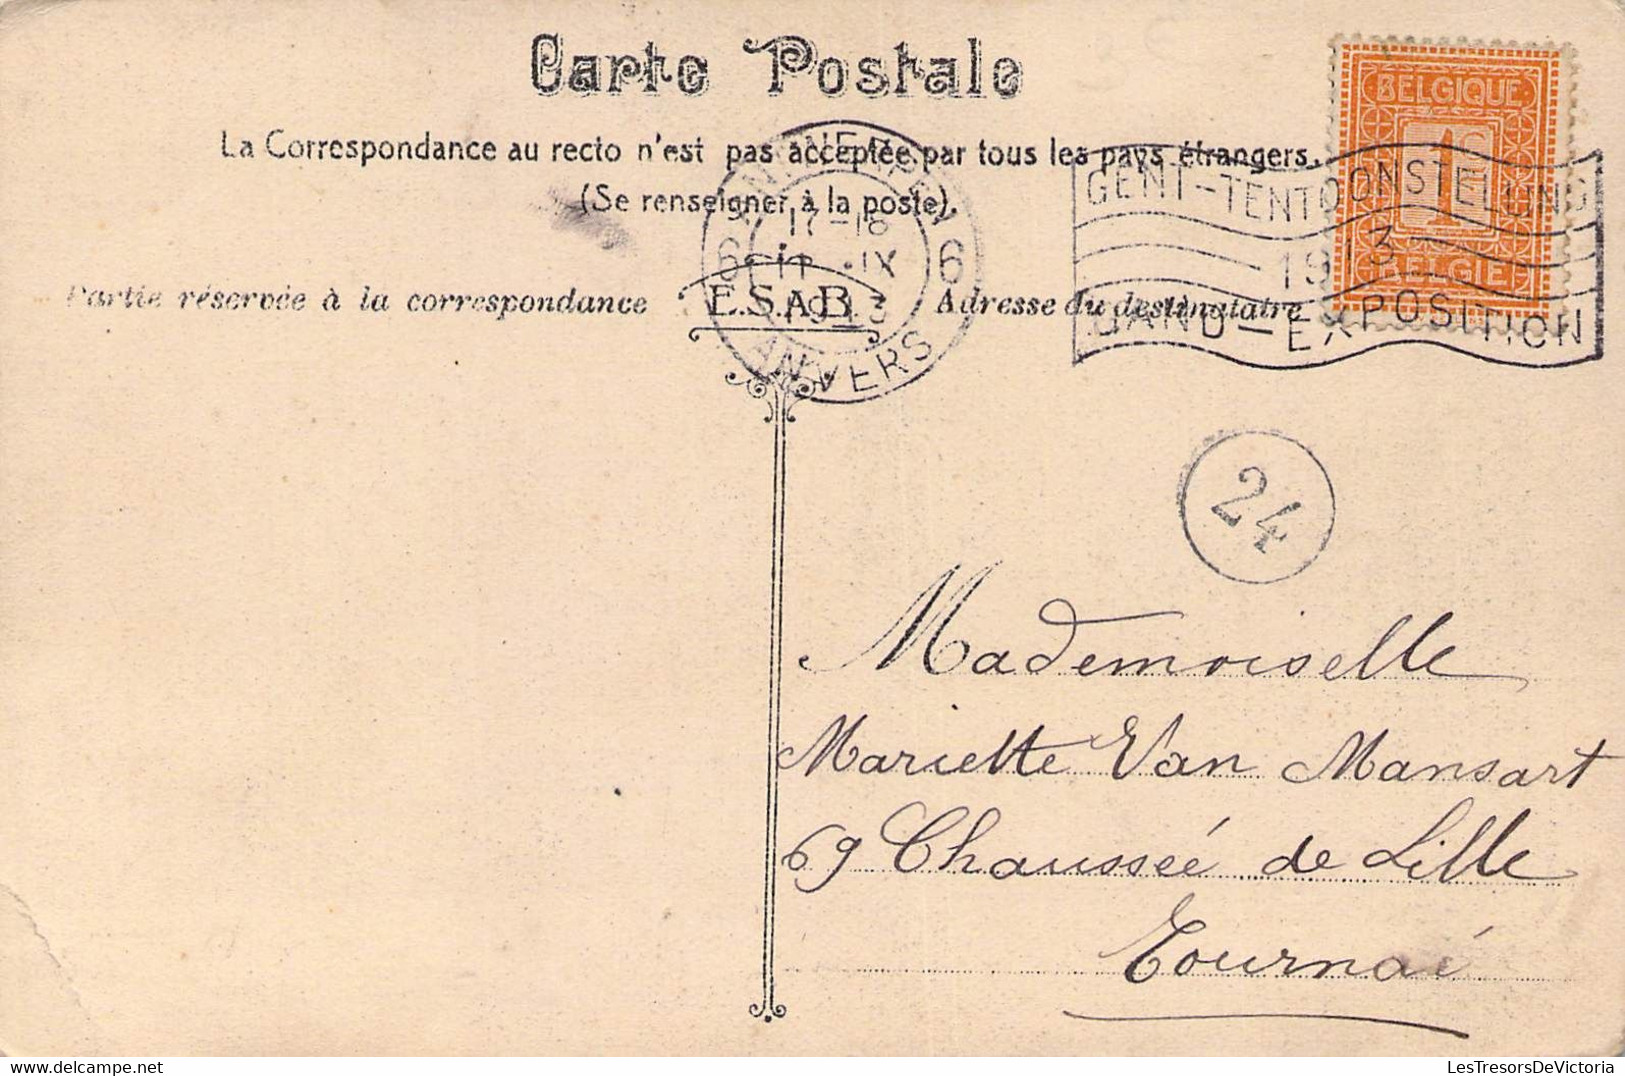 Carte Postale
La Correspondance au recto n'est pas acceptée par tous les pays étrangers.
(Se renseigner à la poste).
Partie réservée à la correspondance
E.S.A.B.
Adresse du destinataire
BELGIQUE
1c
BELGIE
ANTWERPEN
6 6
17-18
IX
1913
ANVERS
GENT-TENTOONSTELLING
1913
GAND-EXPOSITION
24
Mademoiselle
Mariette Van Mansart
69 Chaussée de Lille
Tournai
LesTresorsDeVictoria